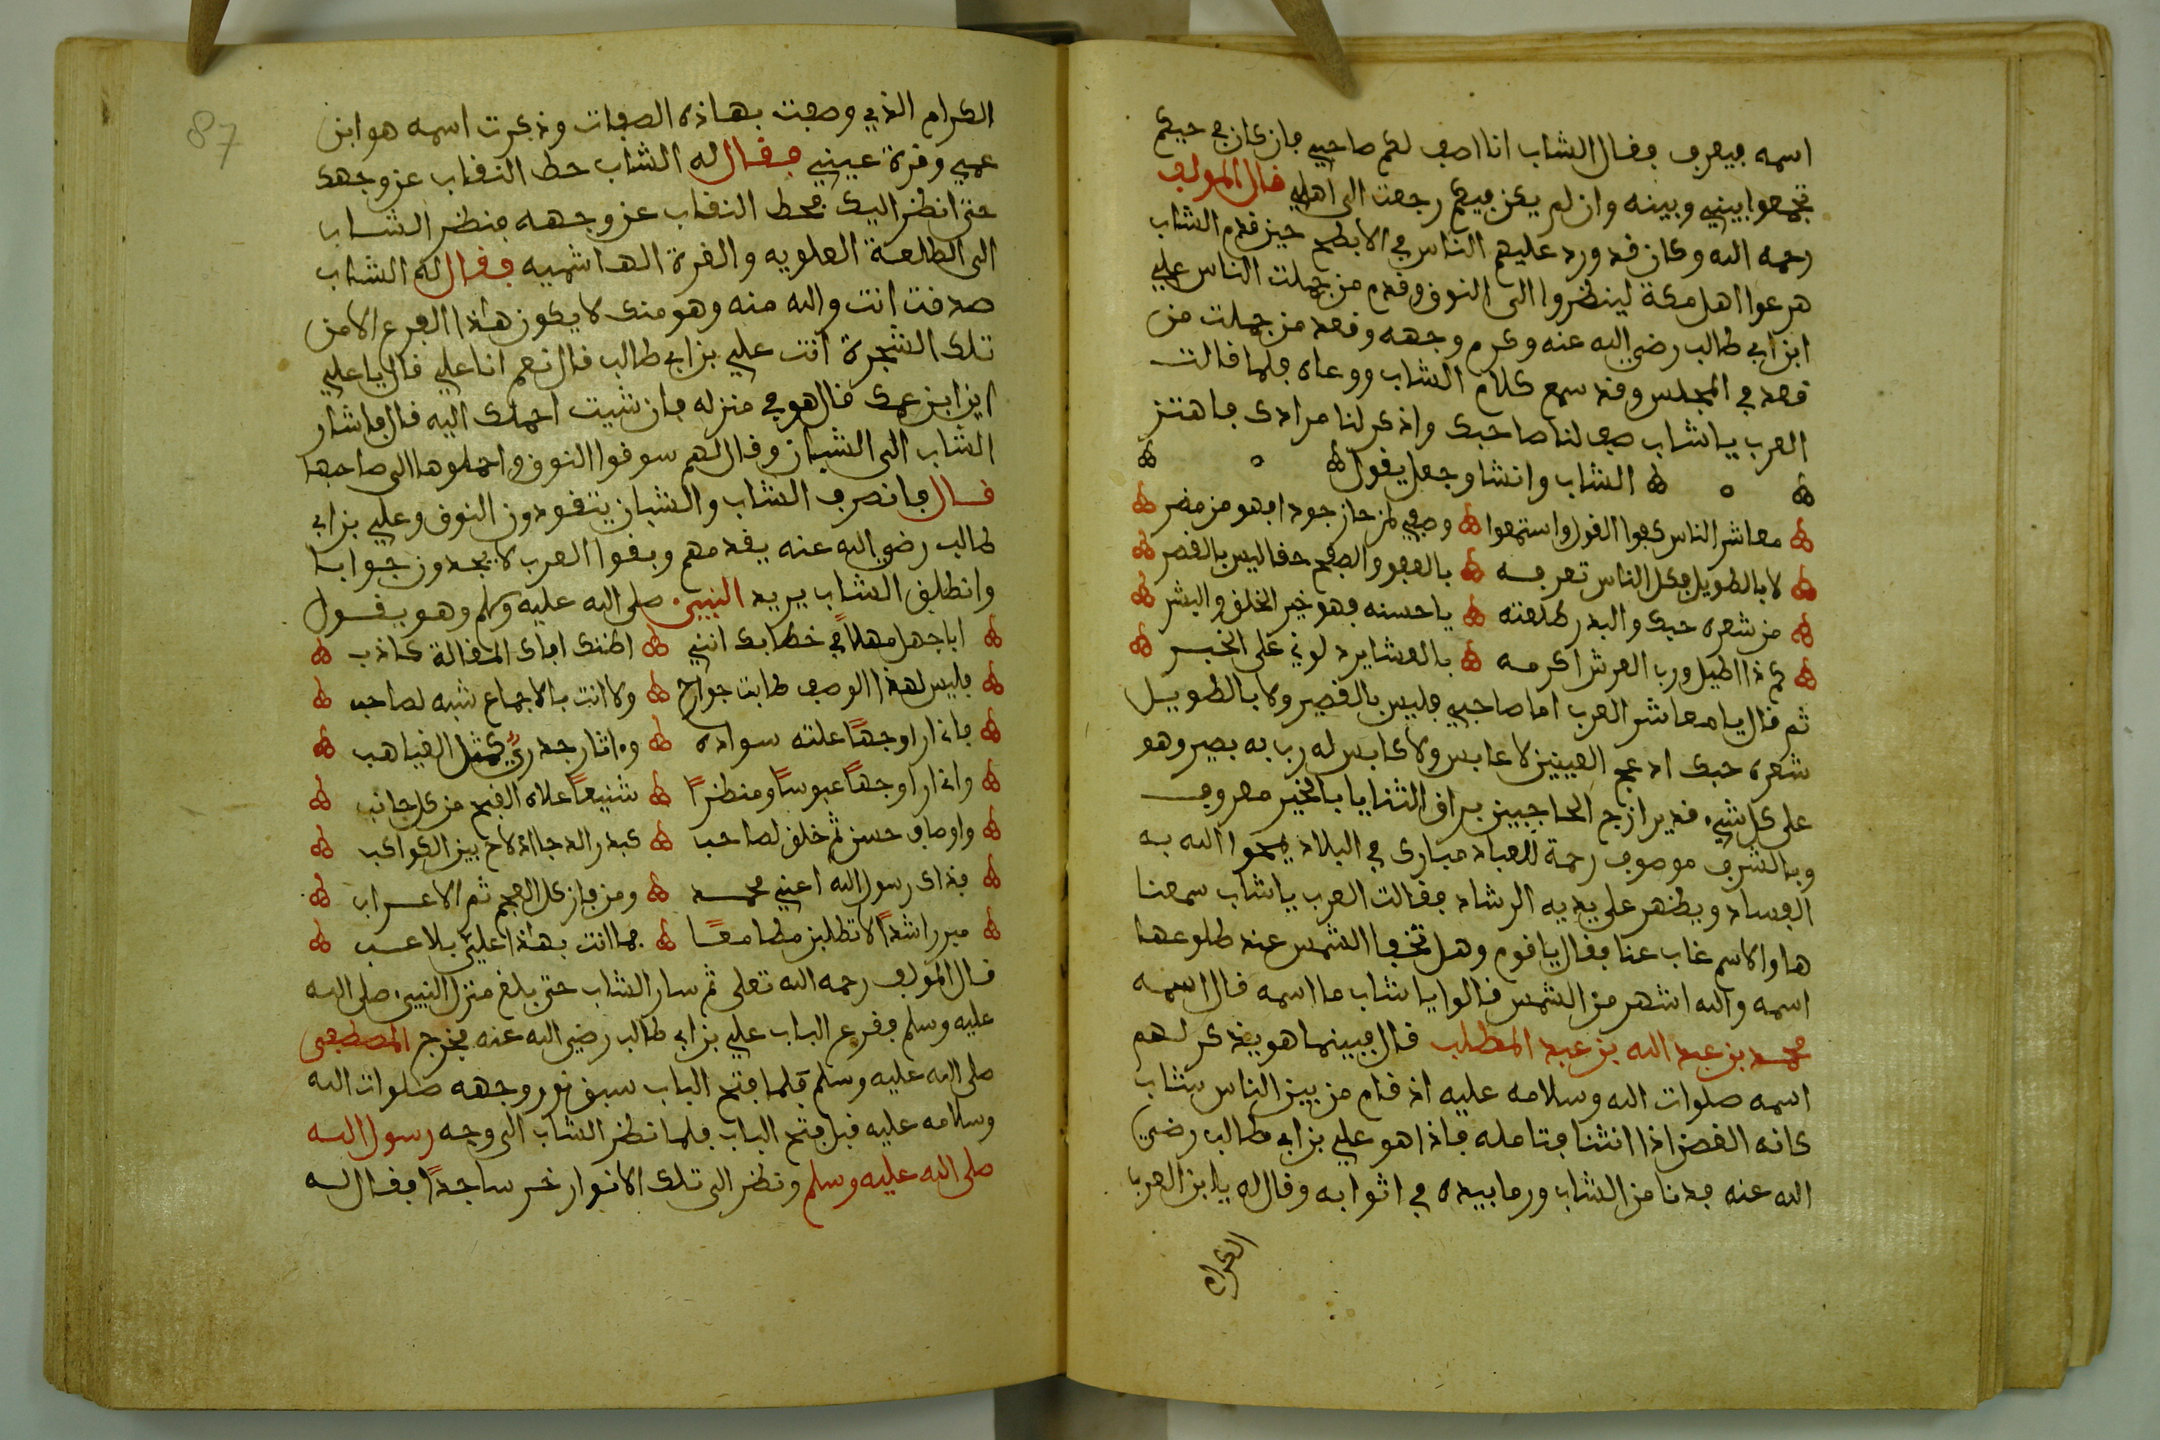 اسمه فيعرف فقال الشاب انا اصف لكم صاحبي فان كان في حيكم
تجمعوا بيني وبينه وان لم يكن فيكم رجعت الى اهلي قال المولف
رحمه الله وكان قد ورد عليهم الناس في الابطح حين قدم الشاب
هرعوا اهل مكة لينظروا الى النوق وقدم من جملت الناس علي
ابن ابي طالب رضي الله عنه وكرم وجهه وقعد من جملت من
قعد في المجلس وقد سمع كلام الشاب ووعاه فلما قالت
العرب يا شاب صف لنا صاحبك واذكر لنا مرادك فاهتز
الشاب وانشا وجعل يقول
معاشر الناس كفوا القول واستمعوا وصفي لمن حاز جودا فهو من مضر
لا بالطويل فكل الناس تعرفه بالعفو والصفح حقا ليس بالقصر
من شعره حبك والبدر طلعته يا حسنه فهو خير الخلق والبشر
كم ذا اطيل ورب العرش اكرمه بالعشاير دلوني على الخبر
ثم قال يا معاشر العرب اما صاحبي فليس بالقصير ولا بالطويل
شعره حبك ادعج العينين لا عابس ولا كابس له رب به بصير وهو
على كل شيء قدير ازج الحاجبين براق الثنايا بالخير معروف
وبالشرف موصوف رحمة للعباد مبارك في البلاد يمحوا الله به
الفساد ويظهر على يديه الرشاد فقالت العرب يا شاب سمعنا
ها والاسم غاب عنا فقال يا قوم وهل تخفا الشمس عند طلوعها
اسمه والله اشهر من الشمس قالوا يا شاب ما اسمه قال اسمه
محمد بن عبد الله بن عبد المطلب قال فبينما هو يذكر لهم
اسمه صلوات الله وسلامه عليه اذ قام من بين الناس شاب
كانه الغصن اذا انثنا فتامله فاذا هو علي بن ابي طالب رضي
الله عنه فدنا من الشاب ورما بيده في اثوابه وقال له يا بن العرب
الكرام
87
الكرام الذي وصفت بهاذه الصفات وذكرت اسمه هو ابن
عمي وقرة عيني فقال له الشاب حط النقاب عن وجهك
حتى انظر اليك فحط النقاب عن وجهه فنظر الشاب
الى الطلعة العلويه والغرة الهاشميه فقال له الشاب
صدقت انت والله منه وهو منك لا يكون هذا الفرع الا من
تلك الشجرة انت علي بن ابي طالب قال نعم انا علي قال يا علي
اين ابن عمك قال هو في منزله فان شيت احملك اليه قال فاشار
الشاب الى الشبان وقال لهم سوقوا النوق واحملوها الى صاحبها
قال فانصرف الشاب والشبان يتقودون النوق وعلي بن ابي
طالب رضي الله عنه يقدمهم وبقوا العرب لا يجدون جوابا
وانطلق الشاب يريد النبيء صلى الله عليه وسلم وهو يقول
ابا جهل مهلا في خطابك انني اظنك افاك المقالة كاذب
فليس لهذا الوصف طابت جوارح ولا انت بالاجماع شبه لصاحب
فاذ ارا وجها علته سواده وءاثار جدري كمثل الغياهب
واذ ارا وجها عبوسا ومنظرا شنيعا علاه القبح من كل جانب
واوصاف حسن ثم خلق لصاحب كبدر الدجا اذ لاح بين الكواكب
فذاك رسول الله اعني محمد ومن فاز كل العجم ثم الاعراب
فسر راشدا لا تطلبن مطامعا فما انت بهذا علي بلاعب
قال المولف رحمه الله تعلى ثم سار الشاب حتى بلغ منزل النبيء صلى الله
عليه وسلم فقرع الباب علي بن ابي طالب رضي الله عنه فخرج المصطفى
صلى الله عليه وسلم فلما فتح الباب سبق نور وجهه صلوات الله
وسلامه عليه قبل فتح الباب فلما نظر الشاب الى وجه رسول الله
صلى الله عليه وسلم ونظر الى تلك الانوار خر ساجدا فقال له